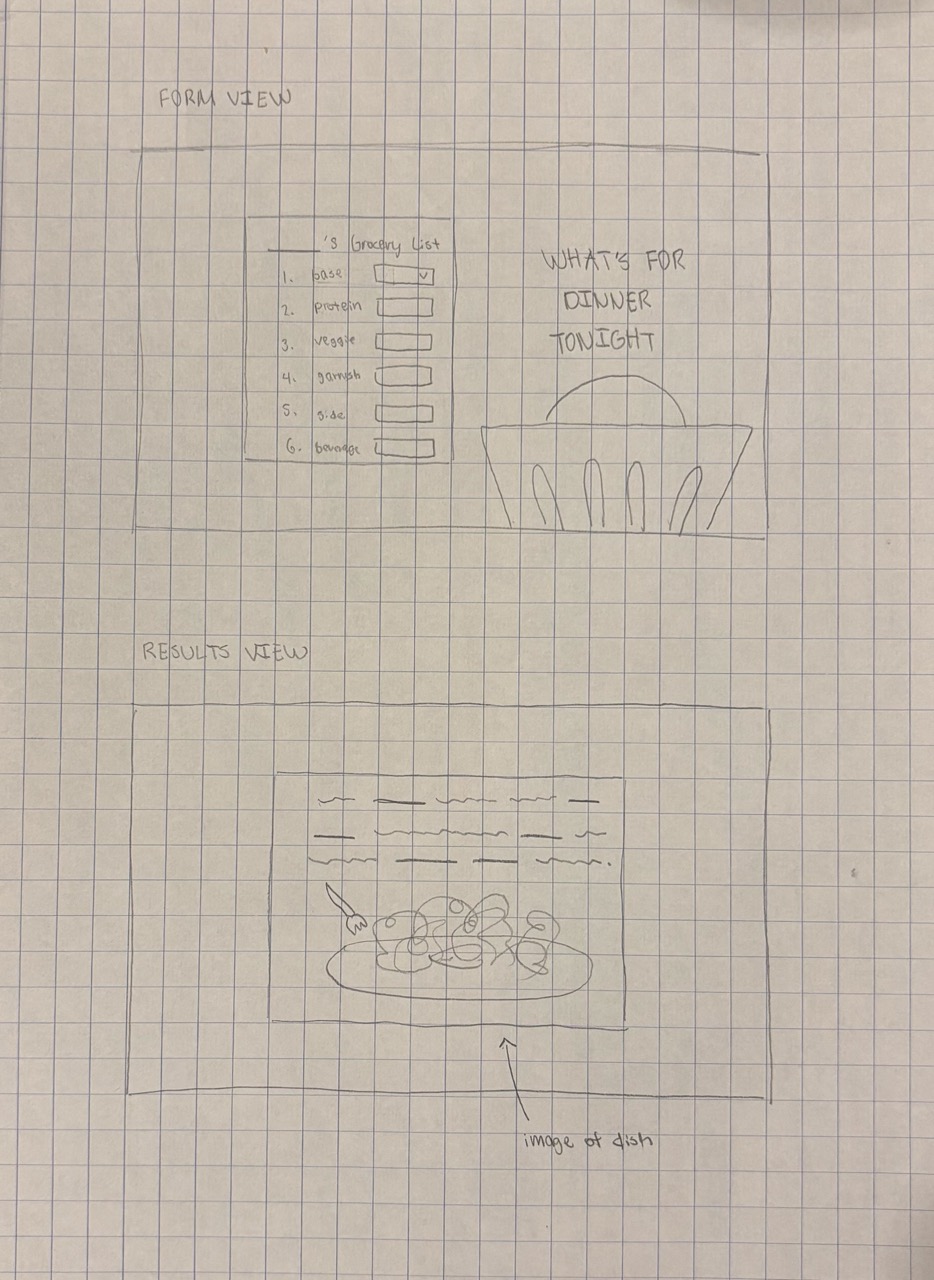 FORM VIEW
____'s Grocery List
1. base
2. protein
3. veggie
4. garnish
5. side
6. beverage
WHAT'S FOR
DINNER
TONIGHT
RESULTS VIEW
image of dish